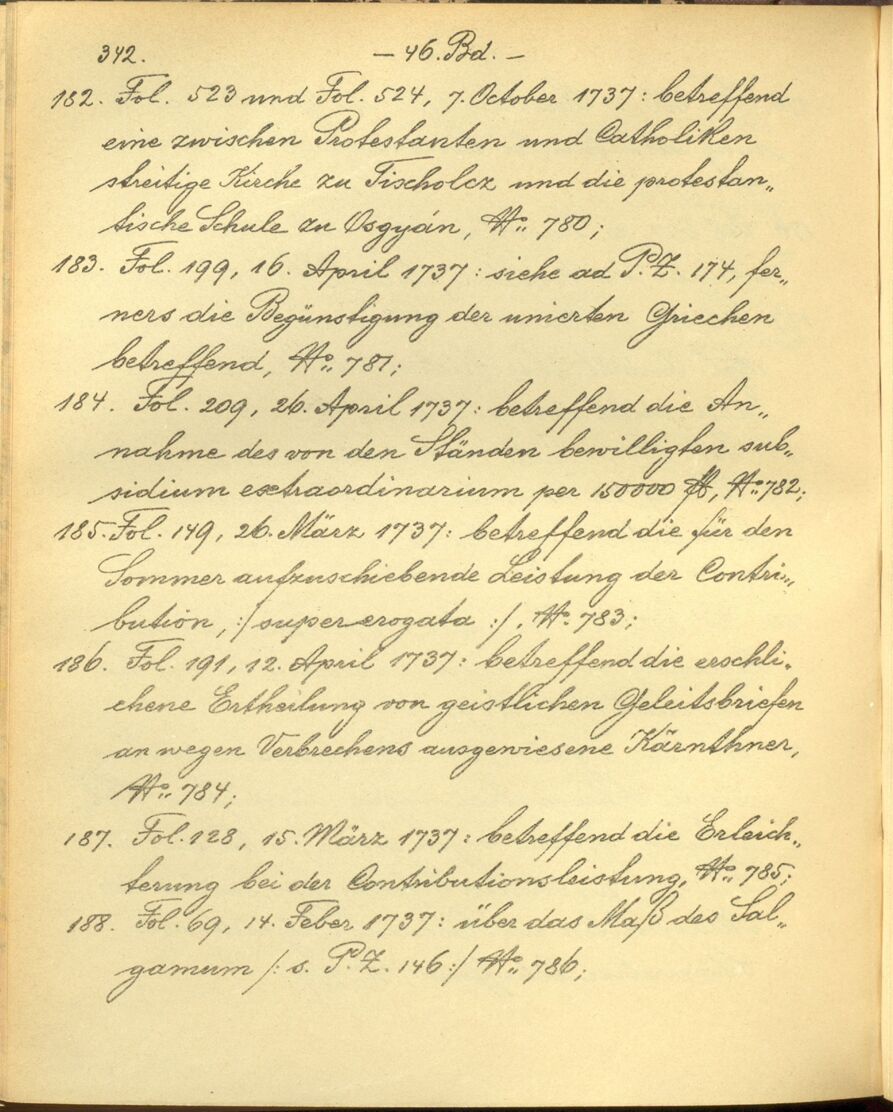 342. — 46. Bd. —
182. Fol. 523 und Fol. 524, 7. October 1737: betreffend
eine zwischen Protestanten und Catholiken
streitige Kirche zu Tischolcz und die protestan„
tische Schule zu Osgyán, No. 780;
183. Fol. 199, 16. April 1737: siehe ad P.Z. 174, fer„
ners die Begünstigung der unierten Griechen
betreffend, No. 781;
184. Fol. 209, 26. April 1737: betreffend die An„
nahme des von den Ständen bewilligten sub„
sidium extraordinarium per 150000 fl, No. 782;
185. Fol. 149, 26. März 1737: betreffend die für den
Sommer aufzuschiebende Leistung der Contri„
bution, :/ supererogata :/, No. 783;
186. Fol. 191, 12. April 1737: betreffend die erschli„
chene Ertheilung von geistlichen Geleitsbriefen
an wegen Verbrechens ausgewiesene Kärnthner,
No. 784;
187. Fol. 128, 15. März 1737: betreffend die Erleich„
terung bei der Contributionsleistung, No. 785;
188. Fol. 69, 14. Feber 1737: über das Maß des Sal„
gamum /: s. P.Z. 146 :/ No. 786;